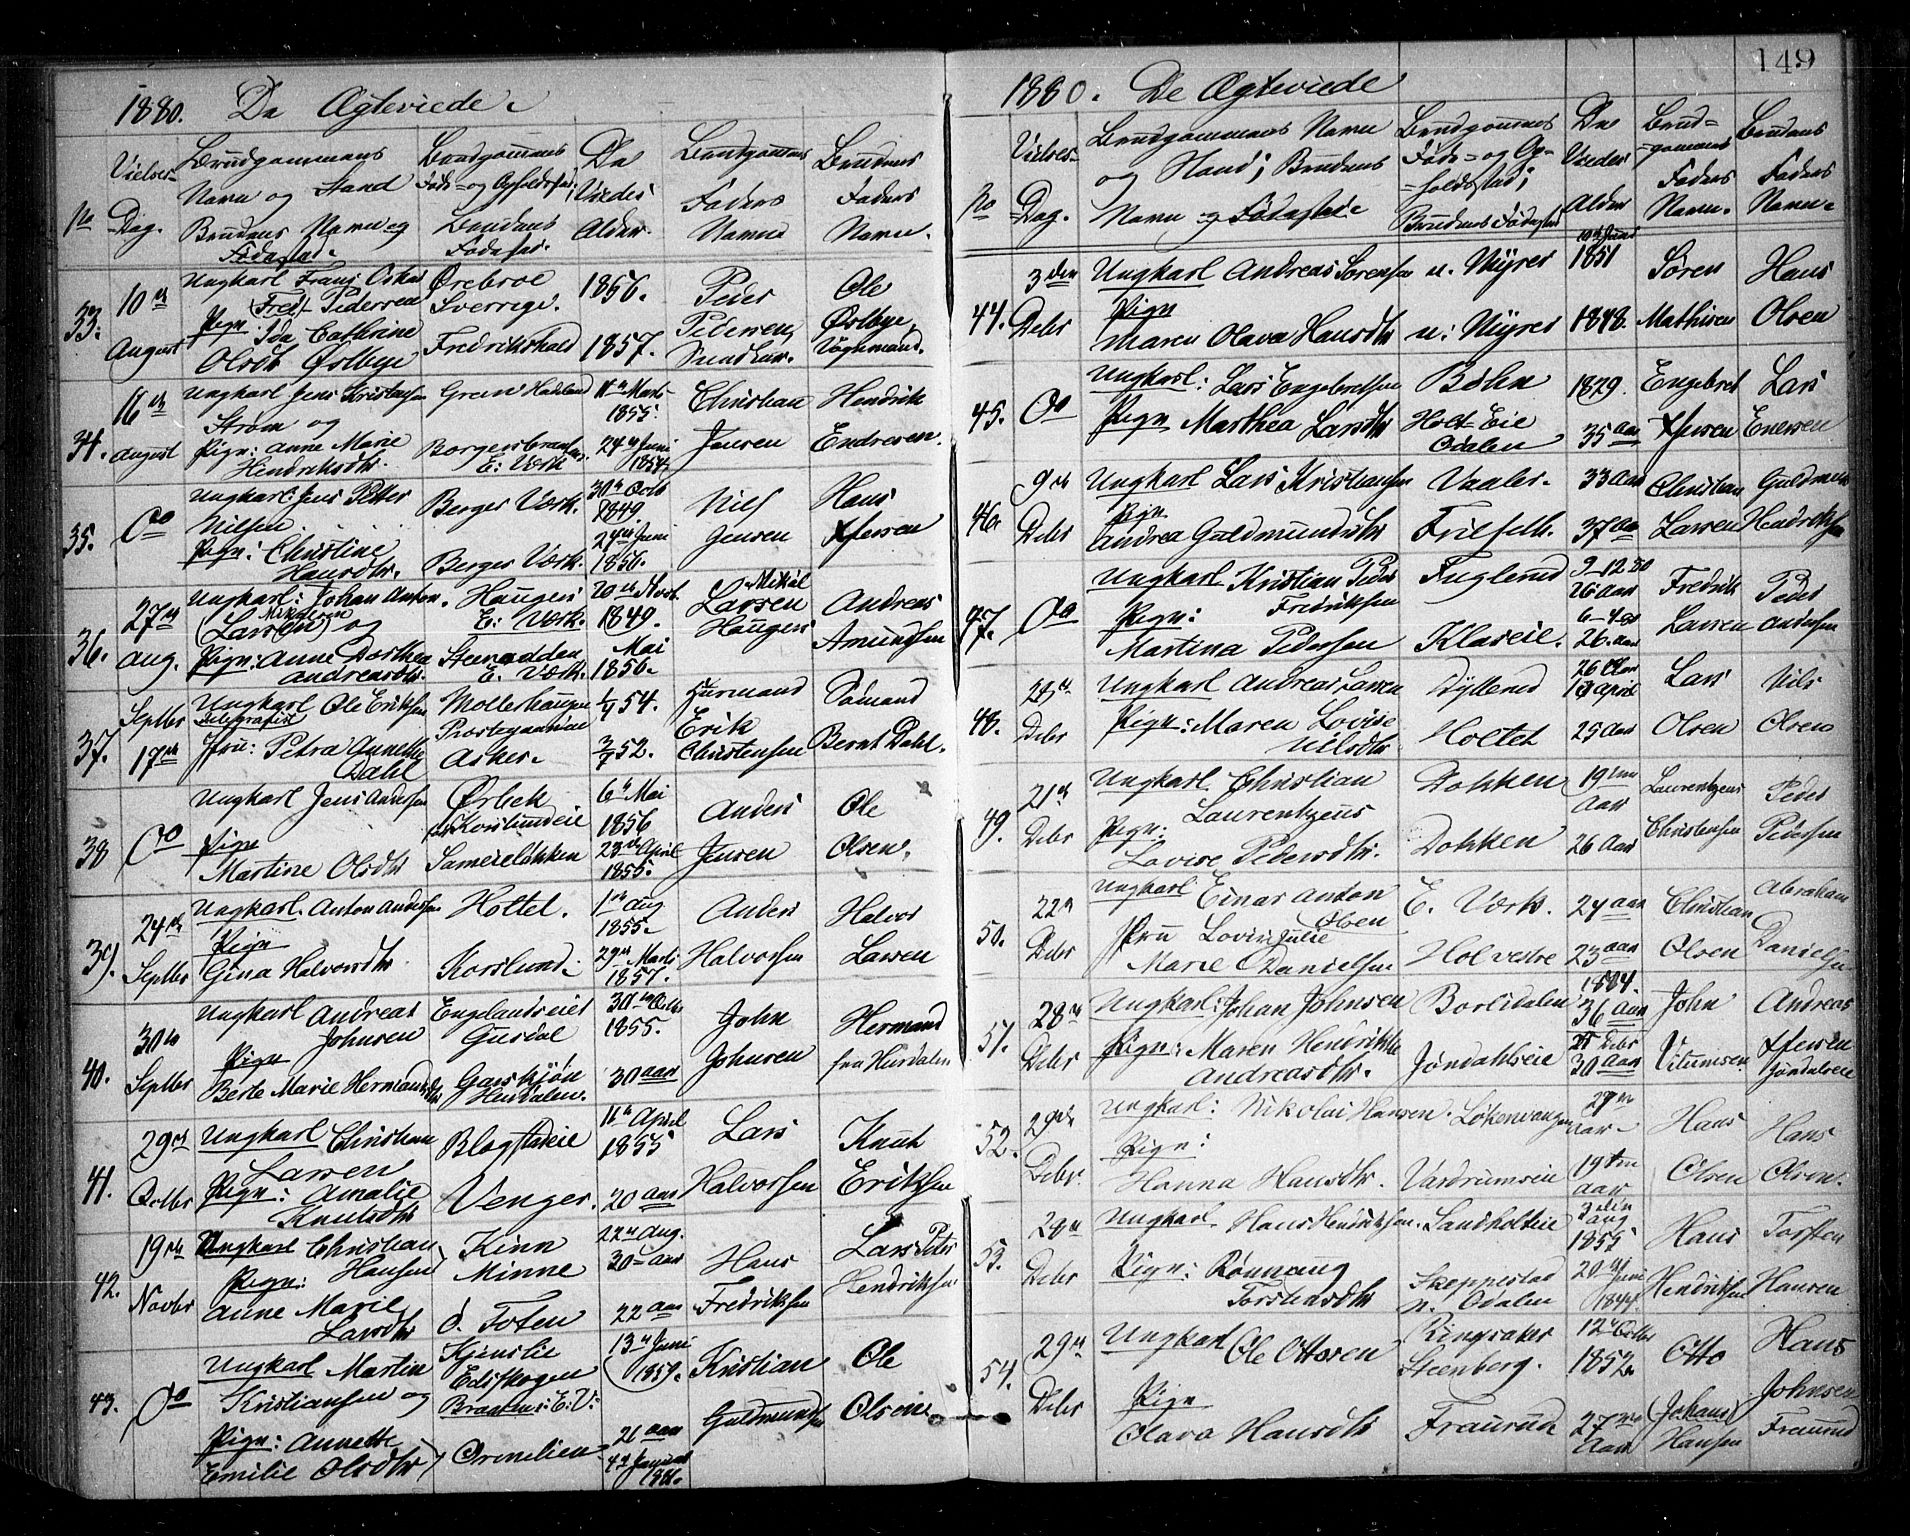 1880. De Ægteviede.
Vielses-
Dag.
No
Brudgommens
Navn og Stand
Brudens Navn og
Fødested.
Brudgommens
Føde- og Opholdssted,
Brudens
Fødested.
De
Viedes
Alder.
Brudgommens
Faders
Navn
Brudens
Faders
Navn.
33.
10de
August
Ungkarl Frans Oskar
(Fred) Pedersen
Pign Ida Cathrine
Olsdtr Østbye
Ørebroe
Sverrige.
Fredrikshald
1856.
1857.
Peder
Pedersen,
Ole
Østbye,
34.
16de
August
Ungkarl Jens Kristensen
Strøm og
Pign: Anne Marie
Hendriksdtr.
Gran Hadeland
E: Værk
11te Marts
1855
24de Juni
1854
Christian
Jensen
Hendrik
Endresen.
35.
Do
Ungkarl: Jens Petter
Nilsen.
Pign: Christine
Hansdtr.
Berger Værk.
Berger Værk.
30te Octb
1849
Juni
1856.
Nils
Jensen
Hans
Xfersen
36.
27de
Aug.
Ungkarl: Johan Anton
Mikelsen
(Larsen) og
Pign: Anne Dorthea
Andreasdtr.
Haugen
E: Værk.
Steenødden
E. Værk
20de Novb.
1849.
Mai
1856.
Mikäl
Larsen
Haugen
Andreas
Amundsen
37.
Septbr
17de
Ungkarl Ole Eriksen
Telegrafist
Jfru: Petra Annette
Dahl
Møllerhaugen
Asker.
54.
52.
Erik
Christensen
Sømand
Bernt Dahl.
38
Do
Ungkarl Jens Andersen
Pign
Martine Olsdtr
Ørbek
Korslundeie
Sameieløkken
6te Mai
1856
23de April
1855.
Anders
Jensen
Ole
Olsen,
39.
24de
Septbr
Ungkarl. Anton Andersen
Pign
Gina Halvorsdtr
Holtet.
Korslund.
1ste Aug
1855.
29de Marts
1857.
Anders
Halvorsen
Halvor
Larsen
40.
30te
Septbr
Ungkarl Andreas
Johnsen
Pign
Berte Marie Hermandsdtr
Englandseiet
Garsjøn
Hurdalen.
30te Octbr
1855.
30 aar
John
Johnsen
Hermand
fra Hurdalen
41.
29de
Octbr
Ungkarl Christian
Larsen
Pign: Amalie
Knutsdtr
Blegstadeie
Venger.
11te April
1855
20 aar
Lars
Halvorsen
Knut
Eriksen
42.
19de
Novbr
Ungkarl Christian
Hansen
Pign:
Anne Marie
Larsdtr
Kinn
Minne
Ø. Toten
22de Aug.
30 aar
22 aar
Hans
Fredriksen
Lars Peter
Hendriksen
43.
Do
Ungkarl Martin
Kristiansen og
Pign: Annette
Emilie Olsdtr
Kjenslie
Edsskogen
E: V:
Ormelien
13de Juni
1857.
21 aar
Kristian
Guldmundsen
Ole
Olsen
149
1880. De Ægteviede
No
Vielses-
Dag.
Brudgommens Navn
og Stand; Brudens
Navn og Fødested.
Brudgommens
Føde- og Op-
holdssted;
Brudens Fødested
De
Viedes
Alder
Brud-
gommens
Faders
Navn.
Brudens
Faders
Navn.
44.
3den
Debr
Ungkarl Andreas Sørensen
Pign
Maren Olava Hansdtr
n. Myrer
n: Myrer
10de Juni
1851
1848.
Søren
Mathisen
Hans
Olsen
45.
Do
Ungkarl: Lars Engebretsen
Pign Marthea Larsdtr
Bøhn
Holt Eie
Odalen
1829.
35 aar
Engebret
Xfersen
Lars
Enersen
46.
9de
Debr
Ungkarl Lars Kristiansen
Pign
Andrea Guldmundsdtr
Vaaler.
Frilseth.
33 aar
37 aar
Christian
Larsen
Guldmund
Hendriksen
47.
Do
Ungkarl Kristian Peder
Fredriksen
Pign:
Martina Pedersen
Fuglerud
Klaseie.
9-12 80
26 aar
26. aar
Fredrik
Larsen
Peder
Andersen
48.
28de
Debr
Ungkarl Andreas Larsen
Pign: Maren Lovise
Nilsdtr
Dyllerud
Holtet
26 aar
13 april
25 aar
Lars
Olsen
Nils
Olsens
49.
21de
Debr
Ungkarl Christian
Laurentzeus
Pign:
Lovise Pedersdtr.
Dokken
Dokken
19
aar
26 Aar
Laurentzeus
Christensen
Peder
Pedersen
50.
22de
Debr
Ungkarl Einar Anton
Olsen
Jfru Lovise Julie
Marie Danielsen
E. Værk.
Hol vestre
24 aar
23 aar
Christian
Olsen
Abraham
Danielsen
51.
28de
Debr
Ungkarl: Johan Johnsen
Pign: Maren Hendrikke
Andreasdtr.
Borlidalen
Jøndahlseie
1884.
36 Aar
21 Debr
30 aar
John
Vitumsen
Andreas
Xfersen
Jøndalseie
52.
29de
Debr.
Ungkarl: Nikolai Hansen.
Pign:
Hanna Hansdtr.
Løkenvangen
Vardrumseie
aar
19
aar
Hans
Olsen
Hans
Olsen.
53.
28de
Debr
Ungkarl Hans Hendriksen.
Pign: Rønnaug
Torstensdtr
Sandholteie
Skeppestad
n. Odalen
3die
aug
1855
20de Juni
1844.
Hans
Hendriksen
Torsten
Hansen
54.
29de
Debr
Ungkarl Ole Ottesen
Pign
Olava Hansdtr
Ringsaker
Steenberg.
Fraurud
12te Octbr
1852.
27
Aar
Otto
(Johans)
Hansen
Hans
Johnsen
Fraurud